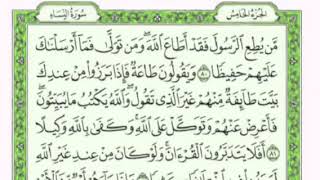 الجزء الخامس
سورة النساء
مَّن يُطِعِ الرَّسُولَ فَقَدْ أَطَاعَ اللَّهَ وَمَن تَوَلَّى فَمَا أَرْسَلْنَاكَ
عَلَيْهِمْ حَفِيظًا ٨٠ وَيَقُولُونَ طَاعَةٌ فَإِذَا بَرَزُوا مِنْ عِندِكَ
بَيَّتَ طَائِفَةٌ مِّنْهُمْ غَيْرَ الَّذِي تَقُولُ وَاللَّهُ يَكْتُبُ مَا يُبَيِّتُونَ
فَأَعْرِضْ عَنْهُمْ وَتَوَكَّلْ عَلَى اللَّهِ وَكَفَى بِاللَّهِ وَكِيلًا
٨١ أَفَلَا يَتَدَبَّرُونَ الْقُرْءَانَ وَلَوْ كَانَ مِنْ عِندِ غَيْرِ اللَّهِ